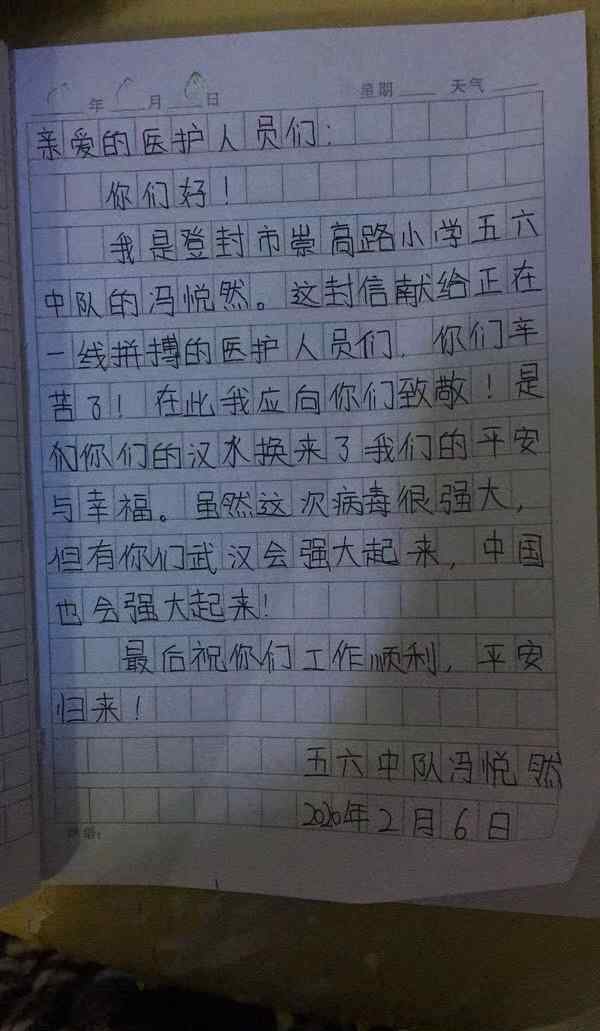 年 月 日 星期 天气
亲爱的医护人员们：
你们好！
我是登封市崇高路小学五六
中队的冯悦然。这封信献给正在
一线拼搏的医护人员们，你们辛
苦了！在此我应向你们致敬！是
你们的汉水换来了我们的平安
与幸福。虽然这次病毒很强大，
但有你们武汉会强大起来，中国
也会强大起来！
最后祝你们工作顺利，平安
归来！
五六中队冯悦然
2020年2月6日